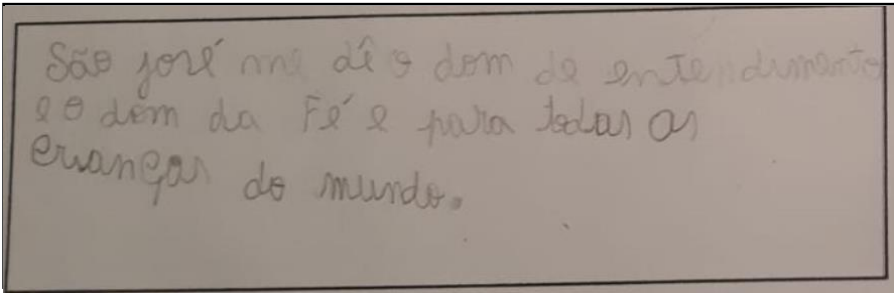 São josé me dê o dom de entendimento
e o dom da Fé e para todas as
crianças do mundo.